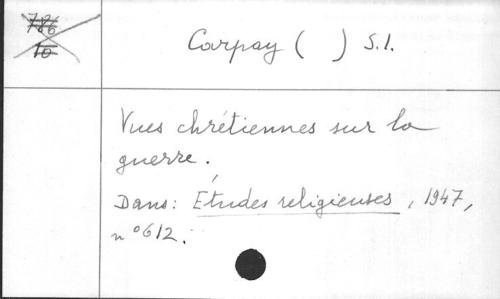 Carpay ( ) S.I.
Vues chrétiennes sur la
guerre.
Dans: Études religieuses, 1947,
n° 612.